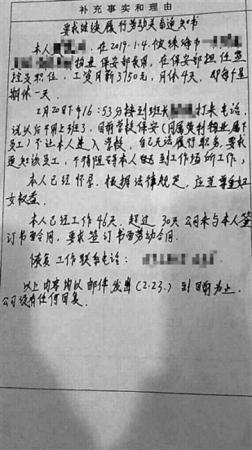 补充事实和理由
要求继续履行劳动关系通知书
本人 在2019.1.4.被珠海市
招进保安部长期,在保安部担任监
控员职位,工资月薪3750元,月休4天,即每星
期休一天。
2月20日下午16:53分接到班长 打来电话,
说以后不用上班了,目前学校保安(同属
员工)不让本人进入学校,自己无法履行职务,要求
通知该员工,不得阻碍本人每日到工作场所工作,
本人已经怀孕,根据法律规定,应当尊重妇
女权益。
本人已经工作46天,超过30天公司未与本人签
订书面合同,要求签订书面劳动合同。
恢复工作联系电话:
以上内容均以邮件发出(2.23.)到目前为止,
公司没有任何回复。